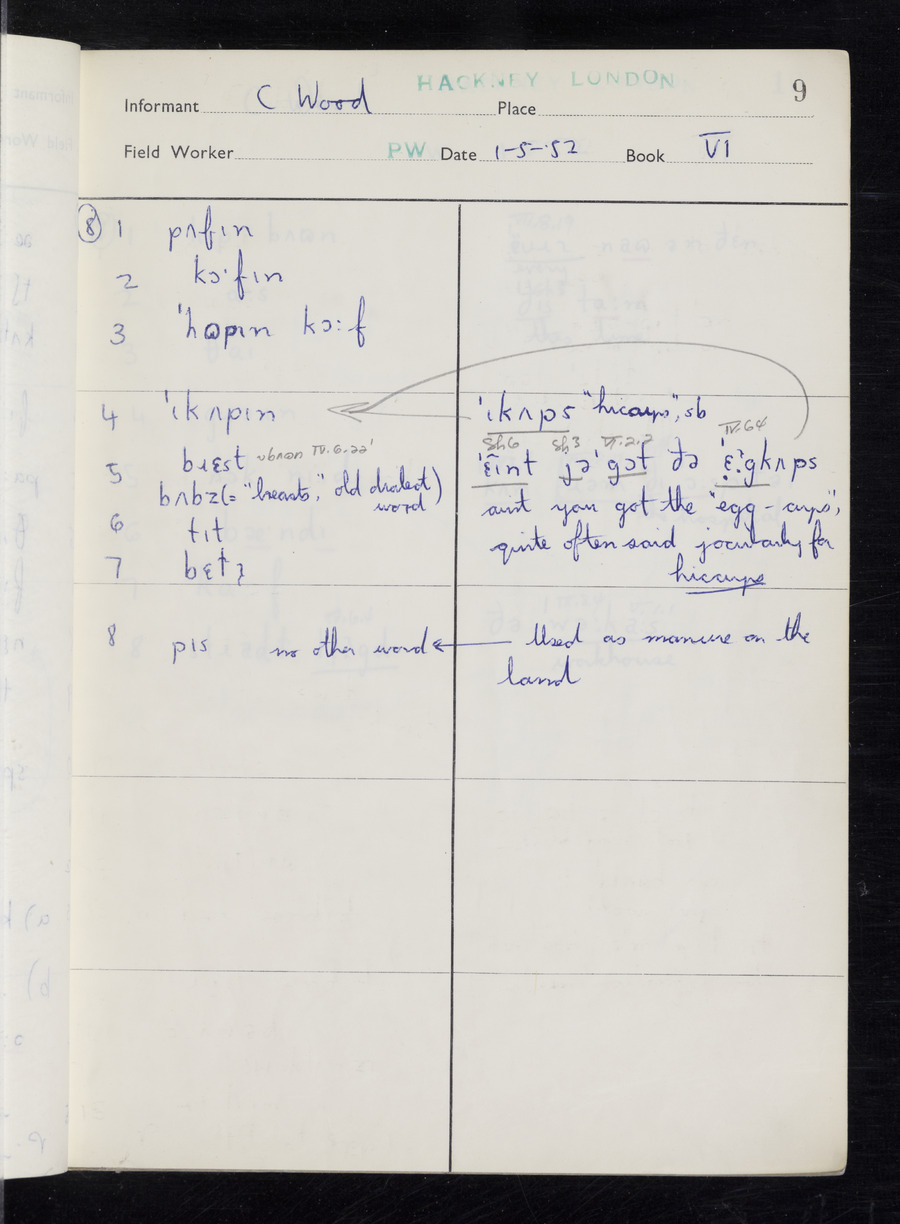 HACKNEY LONDON
9
Informant C Wood Place
Field Worker PW Date 1-5-52 Book VI
⑧ 1 pʌfɪn
2 kɔˑfɪn
3 ˈhɒpɪn kɔːf
4 ˈɪkʌpɪn
5 bɹɛst IV.6.22
bʌbz (= "breasts," old dialect word)
6 tɪt
7 bɛtɜ
8 pɪs no other word
ˈɪkʌps "hiccups", sb
Sh6 Sh3 VI.2.2 IV.64
ˈɛ̃ɪnt jəˈgɔt ðə ˈɛʔgkʌps
aint you got the "egg-cups",
quite often said jocularly for
hiccups
Used as manure on the
land